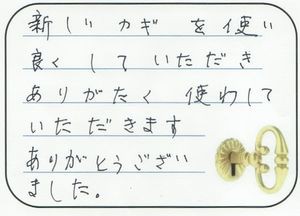 新しいカギを使い
良くしていただき
ありがたく使わして
いただきます
ありがとうござい
ました。